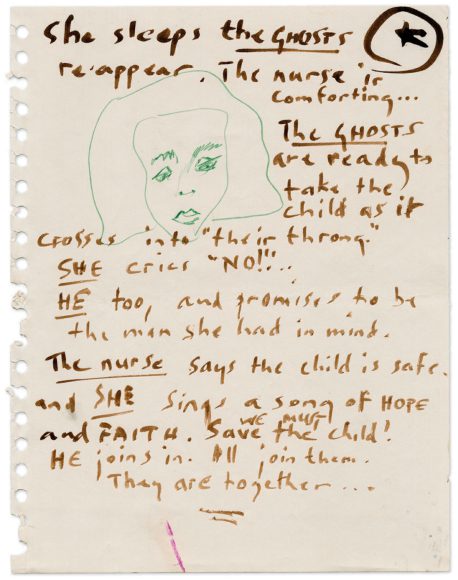 She sleeps the GHOSTS
re-appear. The nurse is
comforting...
The GHOSTS
are ready to
take the
child as it
crosses into "their throng."
SHE cries "NO!!"...
HE too, and promises to be
the man she had in mind.
The nurse says the child is safe.
and SHE sings a song of HOPE
and FAITH. Save WE MUST the child!
HE joins in. All join them.
They are together ...